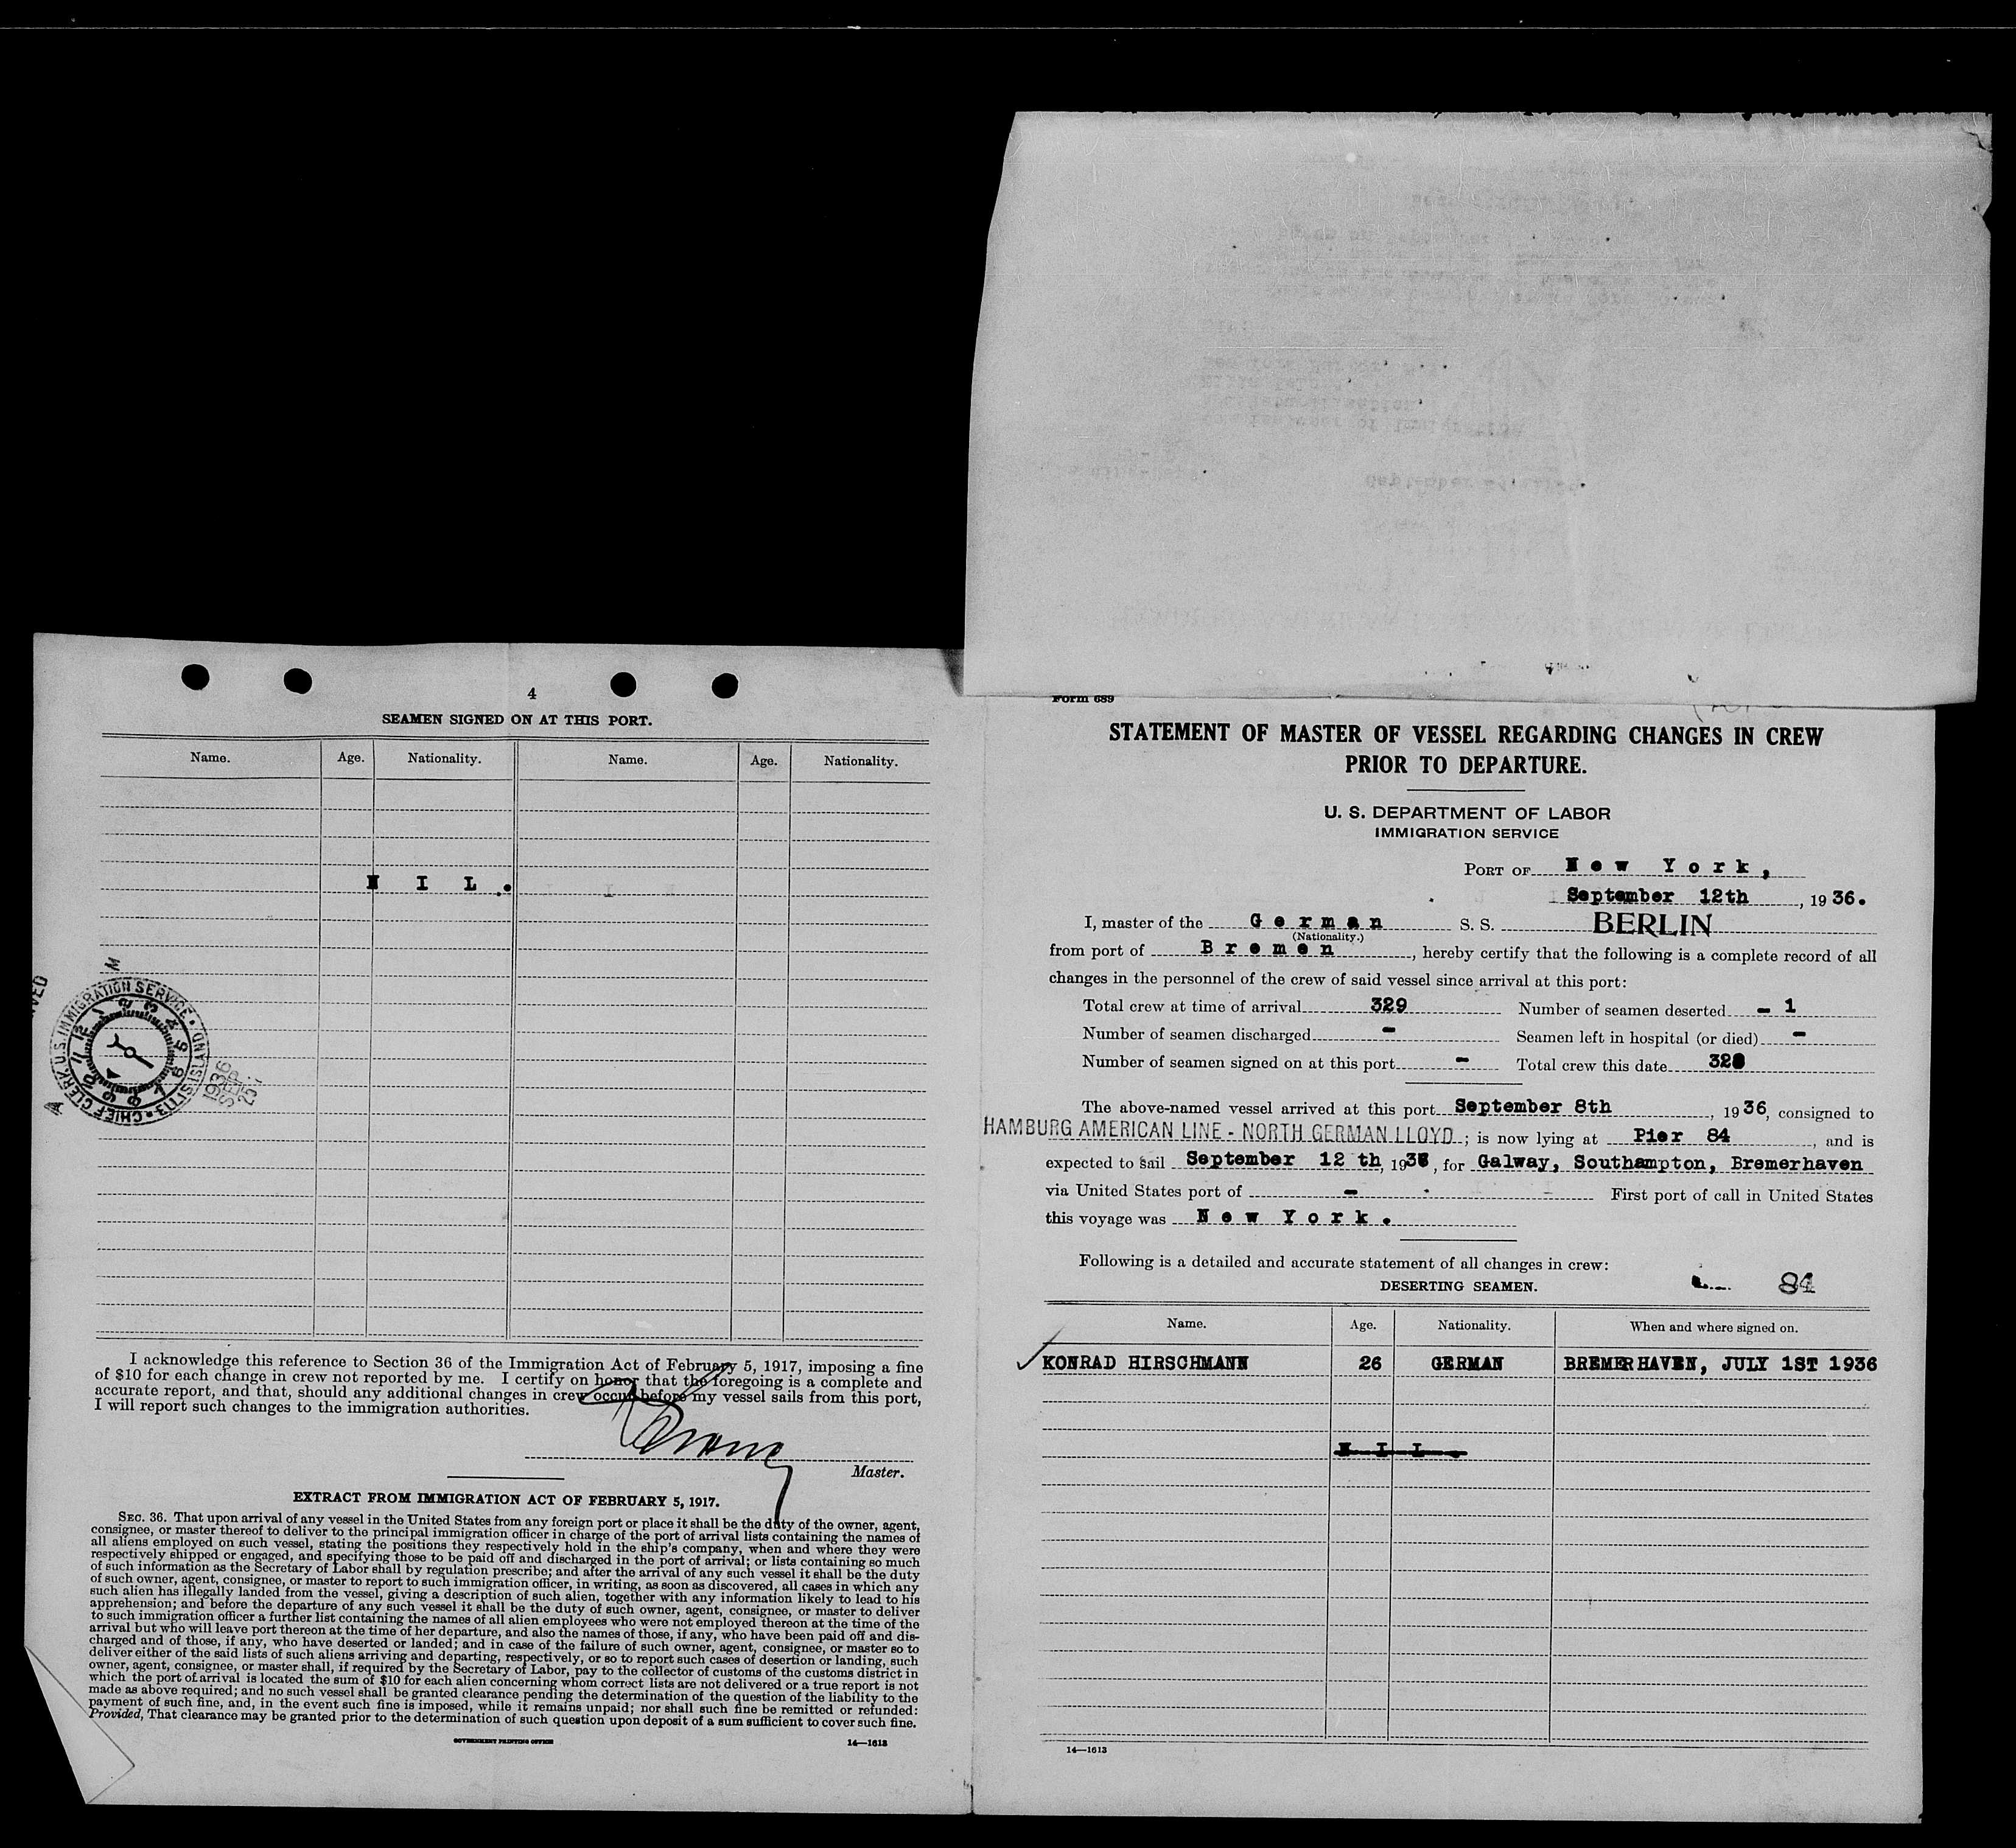 4
SEAMEN SIGNED ON AT THIS PORT.
Name. Age. Nationality. Name. Age. Nationality.
N I L .
CHIEF CLERK U.S. IMMIGRATION SERVICE • ELLIS ISLAND
1936
SEP
25
I acknowledge this reference to Section 36 of the Immigration Act of February 5, 1917, imposing a fine
of $10 for each change in crew not reported by me. I certify on honor that the foregoing is a complete and
accurate report, and that, should any additional changes in crew occur before my vessel sails from this port,
I will report such changes to the immigration authorities.
Master.
EXTRACT FROM IMMIGRATION ACT OF FEBRUARY 5, 1917.
SEC. 36. That upon arrival of any vessel in the United States from any foreign port or place it shall be the duty of the owner, agent,
consignee, or master thereof to deliver to the principal immigration officer in charge of the port of arrival lists containing the names of
all aliens employed on such vessel, stating the positions they respectively hold in the ship's company, when and where they were
respectively shipped or engaged, and specifying those to be paid off and discharged in the port of arrival; or lists containing so much
of such information as the Secretary of Labor shall by regulation prescribe; and after the arrival of any such vessel it shall be the duty
of such owner, agent, consignee, or master to report to such immigration officer, in writing, as soon as discovered, all cases in which any
such alien has illegally landed from the vessel, giving a description of such alien, together with any information likely to lead to his
apprehension; and before the departure of any such vessel it shall be the duty of such owner, agent, consignee, or master to deliver
to such immigration officer a further list containing the names of all alien employees who were not employed thereon at the time of the
arrival but who will leave port thereon at the time of her departure, and also the names of those, if any, who have been paid off and dis-
charged and of those, if any, who have deserted or landed; and in case of the failure of such owner, agent, consignee, or master so to
deliver either of the said lists of such aliens arriving and departing, respectively, or so to report such cases of desertion or landing, such
owner, agent, consignee, or master shall, if required by the Secretary of Labor, pay to the collector of customs of the customs district in
which the port of arrival is located the sum of $10 for each alien concerning whom correct lists are not delivered or a true report is not
made as above required; and no such vessel shall be granted clearance pending the determination of the question of the liability to the
payment of such fine, and, in the event such fine is imposed, while it remains unpaid; nor shall such fine be remitted or refunded:
Provided, That clearance may be granted prior to the determination of such question upon deposit of a sum sufficient to cover such fine.
GOVERNMENT PRINTING OFFICE 14—1613
Form 689
STATEMENT OF MASTER OF VESSEL REGARDING CHANGES IN CREW
PRIOR TO DEPARTURE.
U. S. DEPARTMENT OF LABOR
IMMIGRATION SERVICE
PORT OF New York,
September 12th, 1936.
I, master of the German S. S. BERLIN
(Nationality.)
from port of Bremen, hereby certify that the following is a complete record of all
changes in the personnel of the crew of said vessel since arrival at this port:
Total crew at time of arrival 329 Number of seamen deserted - 1
Number of seamen discharged - Seamen left in hospital (or died) -
Number of seamen signed on at this port - Total crew this date 328
The above-named vessel arrived at this port September 8th, 1936, consigned to
HAMBURG AMERICAN LINE - NORTH GERMAN LLOYD; is now lying at Pier 84, and is
expected to sail September 12 th, 1936, for Galway, Southampton, Bremerhaven
via United States port of - First port of call in United States
this voyage was New York.
Following is a detailed and accurate statement of all changes in crew:
DESERTING SEAMEN. 84
Name. Age. Nationality. When and where signed on.
✓ KONRAD HIRSCHMANN 26 GERMAN BREMERHAVEN, JULY 1ST 1936
N I L .
14—1613